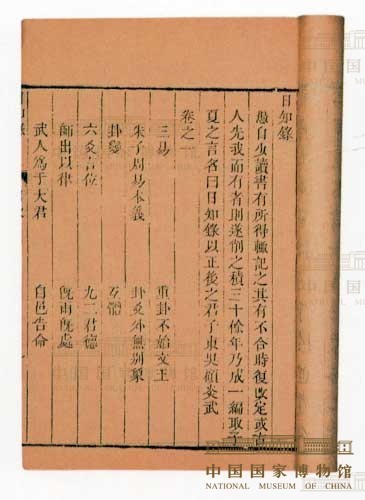 日知錄
愚自少讀書有所得輒記之其有不合時復改定或古
人先我而有者則遂削之積三十餘年乃成一編取子
夏之言名曰日知錄以正後之君子東吳顧炎武
卷之一
三易 重卦不始文王
朱子周易本義 卦爻外無別象
卦變 互體
六爻言位 九二君德
師出以律 既雨既處
武人為于大君 自邑告命
中国国家博物馆
NATIONAL MUSEUM OF CHINA